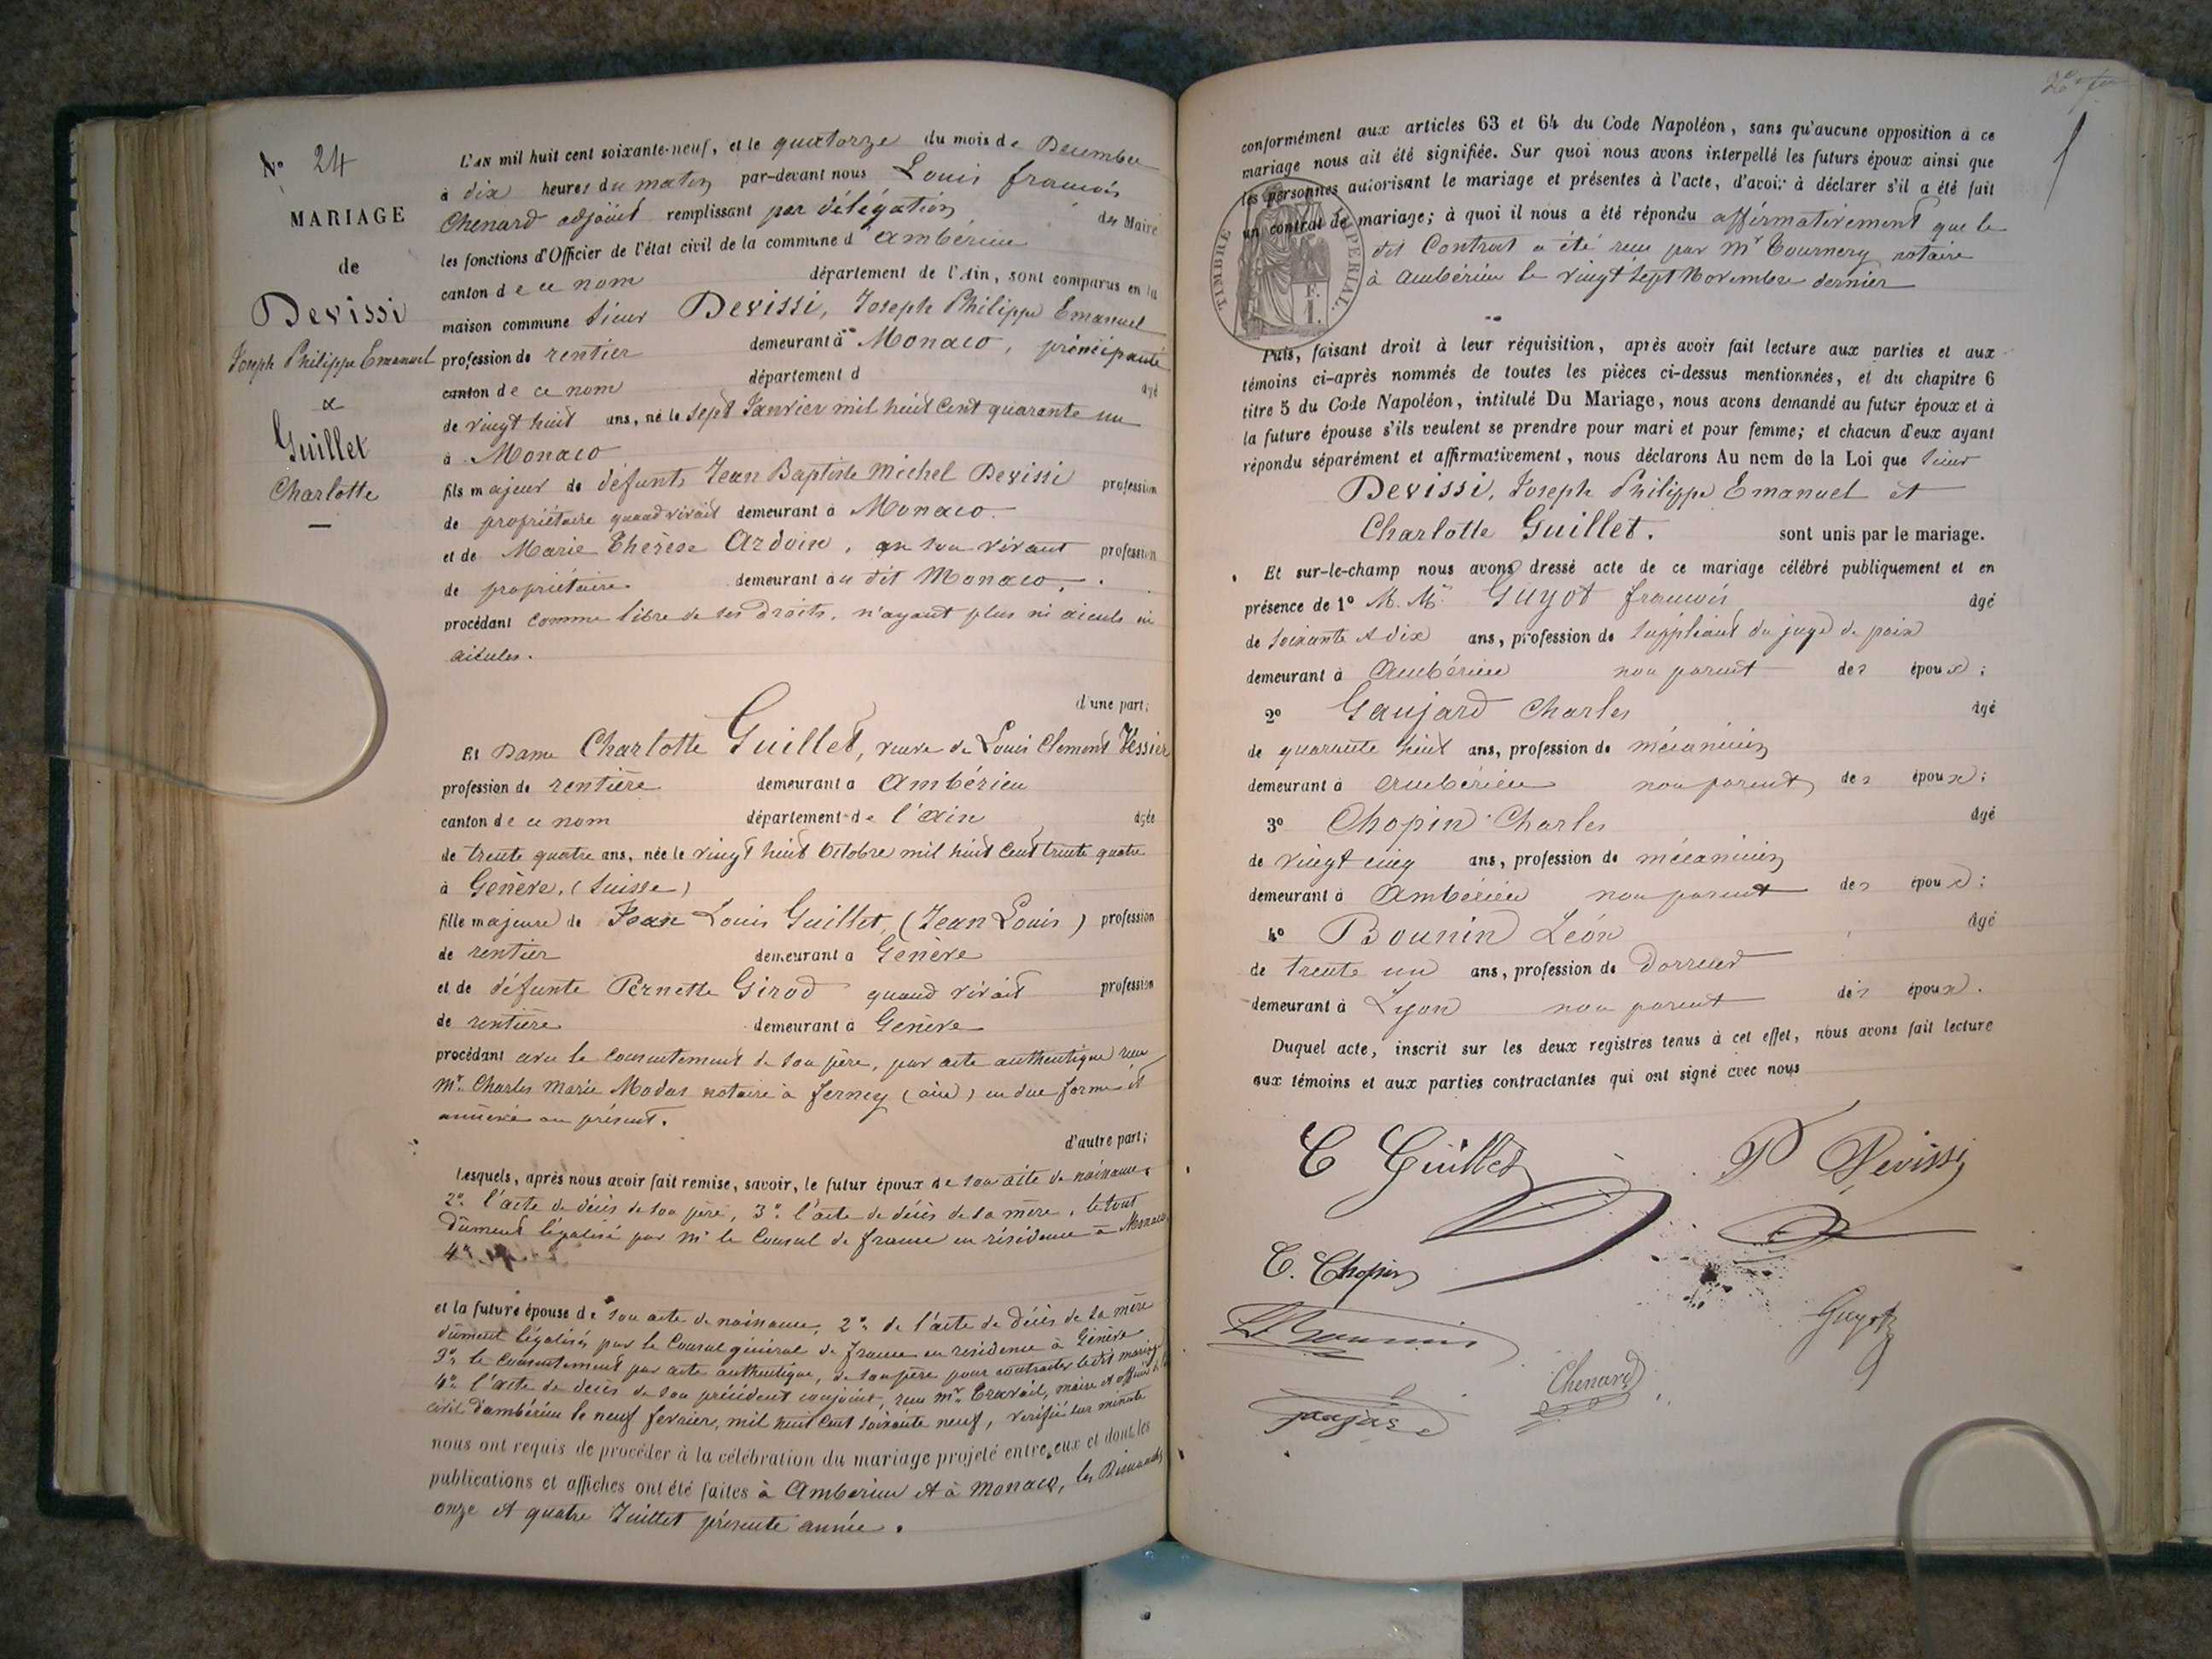 N° 24
MARIAGE
de
Devissi
Joseph Philippe Emanuel
&
Guillet
Charlotte
L'AN mil huit cent soixante-neuf, et le quatorze du mois de Decembre
à dix heures du matin par-devant nous Louis francois
Chenard adjoint remplissant par délégation du Maire
les fonctions d'Officier de l'état civil de la commune d'ambérieu
canton de ce nom département de l'Ain, sont comparus en la
maison commune Sieur Devissi, Joseph Philippe Emanuel
profession de rentier demeurant à Monaco, principauté
canton de ce nom département d âgé
de vingt huit ans, né le sept Janvier mil huit Cent quarante un
à Monaco
fils majeur de défunts Jean Baptiste Michel Devissi profession
de propriétaire quand vivait demeurant à Monaco
et de Marie Thérèse Ardoin, en son vivant profession
de propriétaire demeurant au dit Monaco.
procédant comme libre de ses droits, n'ayant plus ni aieuls ni
aieules.
d'une part;
Et Dame Charlotte Guillet, veuve de Louis Clement Vessier
profession de rentière demeurant à Ambérieu
canton de ce nom département de l'ain âgée
de trente quatre ans, née le vingt huit Octobre mil huit Cent trente quatre
à Genève, (Suisse)
fille majeure de Jean Louis Guillet, (Jean Louis) profession
de rentier demeurant à Genève
et de défunte Pernette Girod quand vivait profession
de rentière demeurant à Genève
procédant avec le consentement de son père, par acte authentique recu
Mr. Charles Marie Modas notaire à ferney (ain) en due forme et
annexé au présent.
d'autre part;
Lesquels, après nous avoir fait remise, savoir, le futur époux de son acte de naissance,
2° l'acte de décès de son père, 3° l'acte de décès de sa mère, le tout
dûment légalisé par Mr le Consul de france en résidence à Monaco
4°
et la future épouse de son acte de naissance, 2° de l'acte de décès de sa mère
dûment légalisés par le Consul général de france en résidence à Genève
3° le consentement par acte authentique, de son père pour contracter ledit mariage
4° l'acte de décès de son précédent conjoint, recu Mr. Travail, maire et officier de l'
civil d'ambérieu le neuf fevrier, mil huit cent soixante neuf, vérifié sur minute
nous ont requis de procéder à la célébration du mariage projeté entre eux et dont les
publications et affiches ont été faites à Ambérieu et à Monaco, les Dimanches
onze et quatre Juillet présente année.
conformément aux articles 63 et 64 du Code Napoléon, sans qu'aucune opposition à ce
mariage nous ait été signifiée. Sur quoi nous avons interpellé les futurs époux ainsi que
les personnes autorisant le mariage et présentes à l'acte, d'avoir à déclarer s'il a été fait
un contrat de mariage; à quoi il nous a été répondu affirmativement que le
dit Contrat a été recu par Mr Tournery notaire
à ambérieu le vingt sept Novembre dernier
TIMBRE IMPÉRIAL.
F.
1.
Puis, faisant droit à leur réquisition, après avoir fait lecture aux parties et aux
témoins ci-après nommés de toutes les pièces ci-dessus mentionnées, et du chapitre 6
titre 5 du Code Napoléon, intitulé Du Mariage, nous avons demandé au futur époux et à
la future épouse s'ils veulent se prendre pour mari et pour femme; et chacun d'eux ayant
répondu séparément et affirmativement, nous déclarons Au nom de la Loi que Sieur
Devissi, Joseph Philippe Emanuel et
Charlotte Guillet. sont unis par le mariage.
Et sur-le-champ nous avons dressé acte de ce mariage célébré publiquement et en
présence de 1° M. Mr Guyot francois âgé
de soixante et dix ans, profession de suppléant du juge de paix
demeurant à Ambérieu non parent des époux;
2° Gaujard Charles âgé
de quarante huit ans, profession de mécanicien
demeurant à Ambérieu non parent des époux;
3° Chopin Charles âgé
de vingt cinq ans, profession de mécanicien
demeurant à Ambérieu non parent des époux;
4° Bounin Léon âgé
de trente un ans, profession de Dorreur
demeurant à Lyon non parent des époux.
Duquel acte, inscrit sur les deux registres tenus à cet effet, nous avons fait lecture
aux témoins et aux parties contractantes qui ont signé avec nous
C Guillet P Devissi
C. Chopin
L Bounin Guyot
Chenard